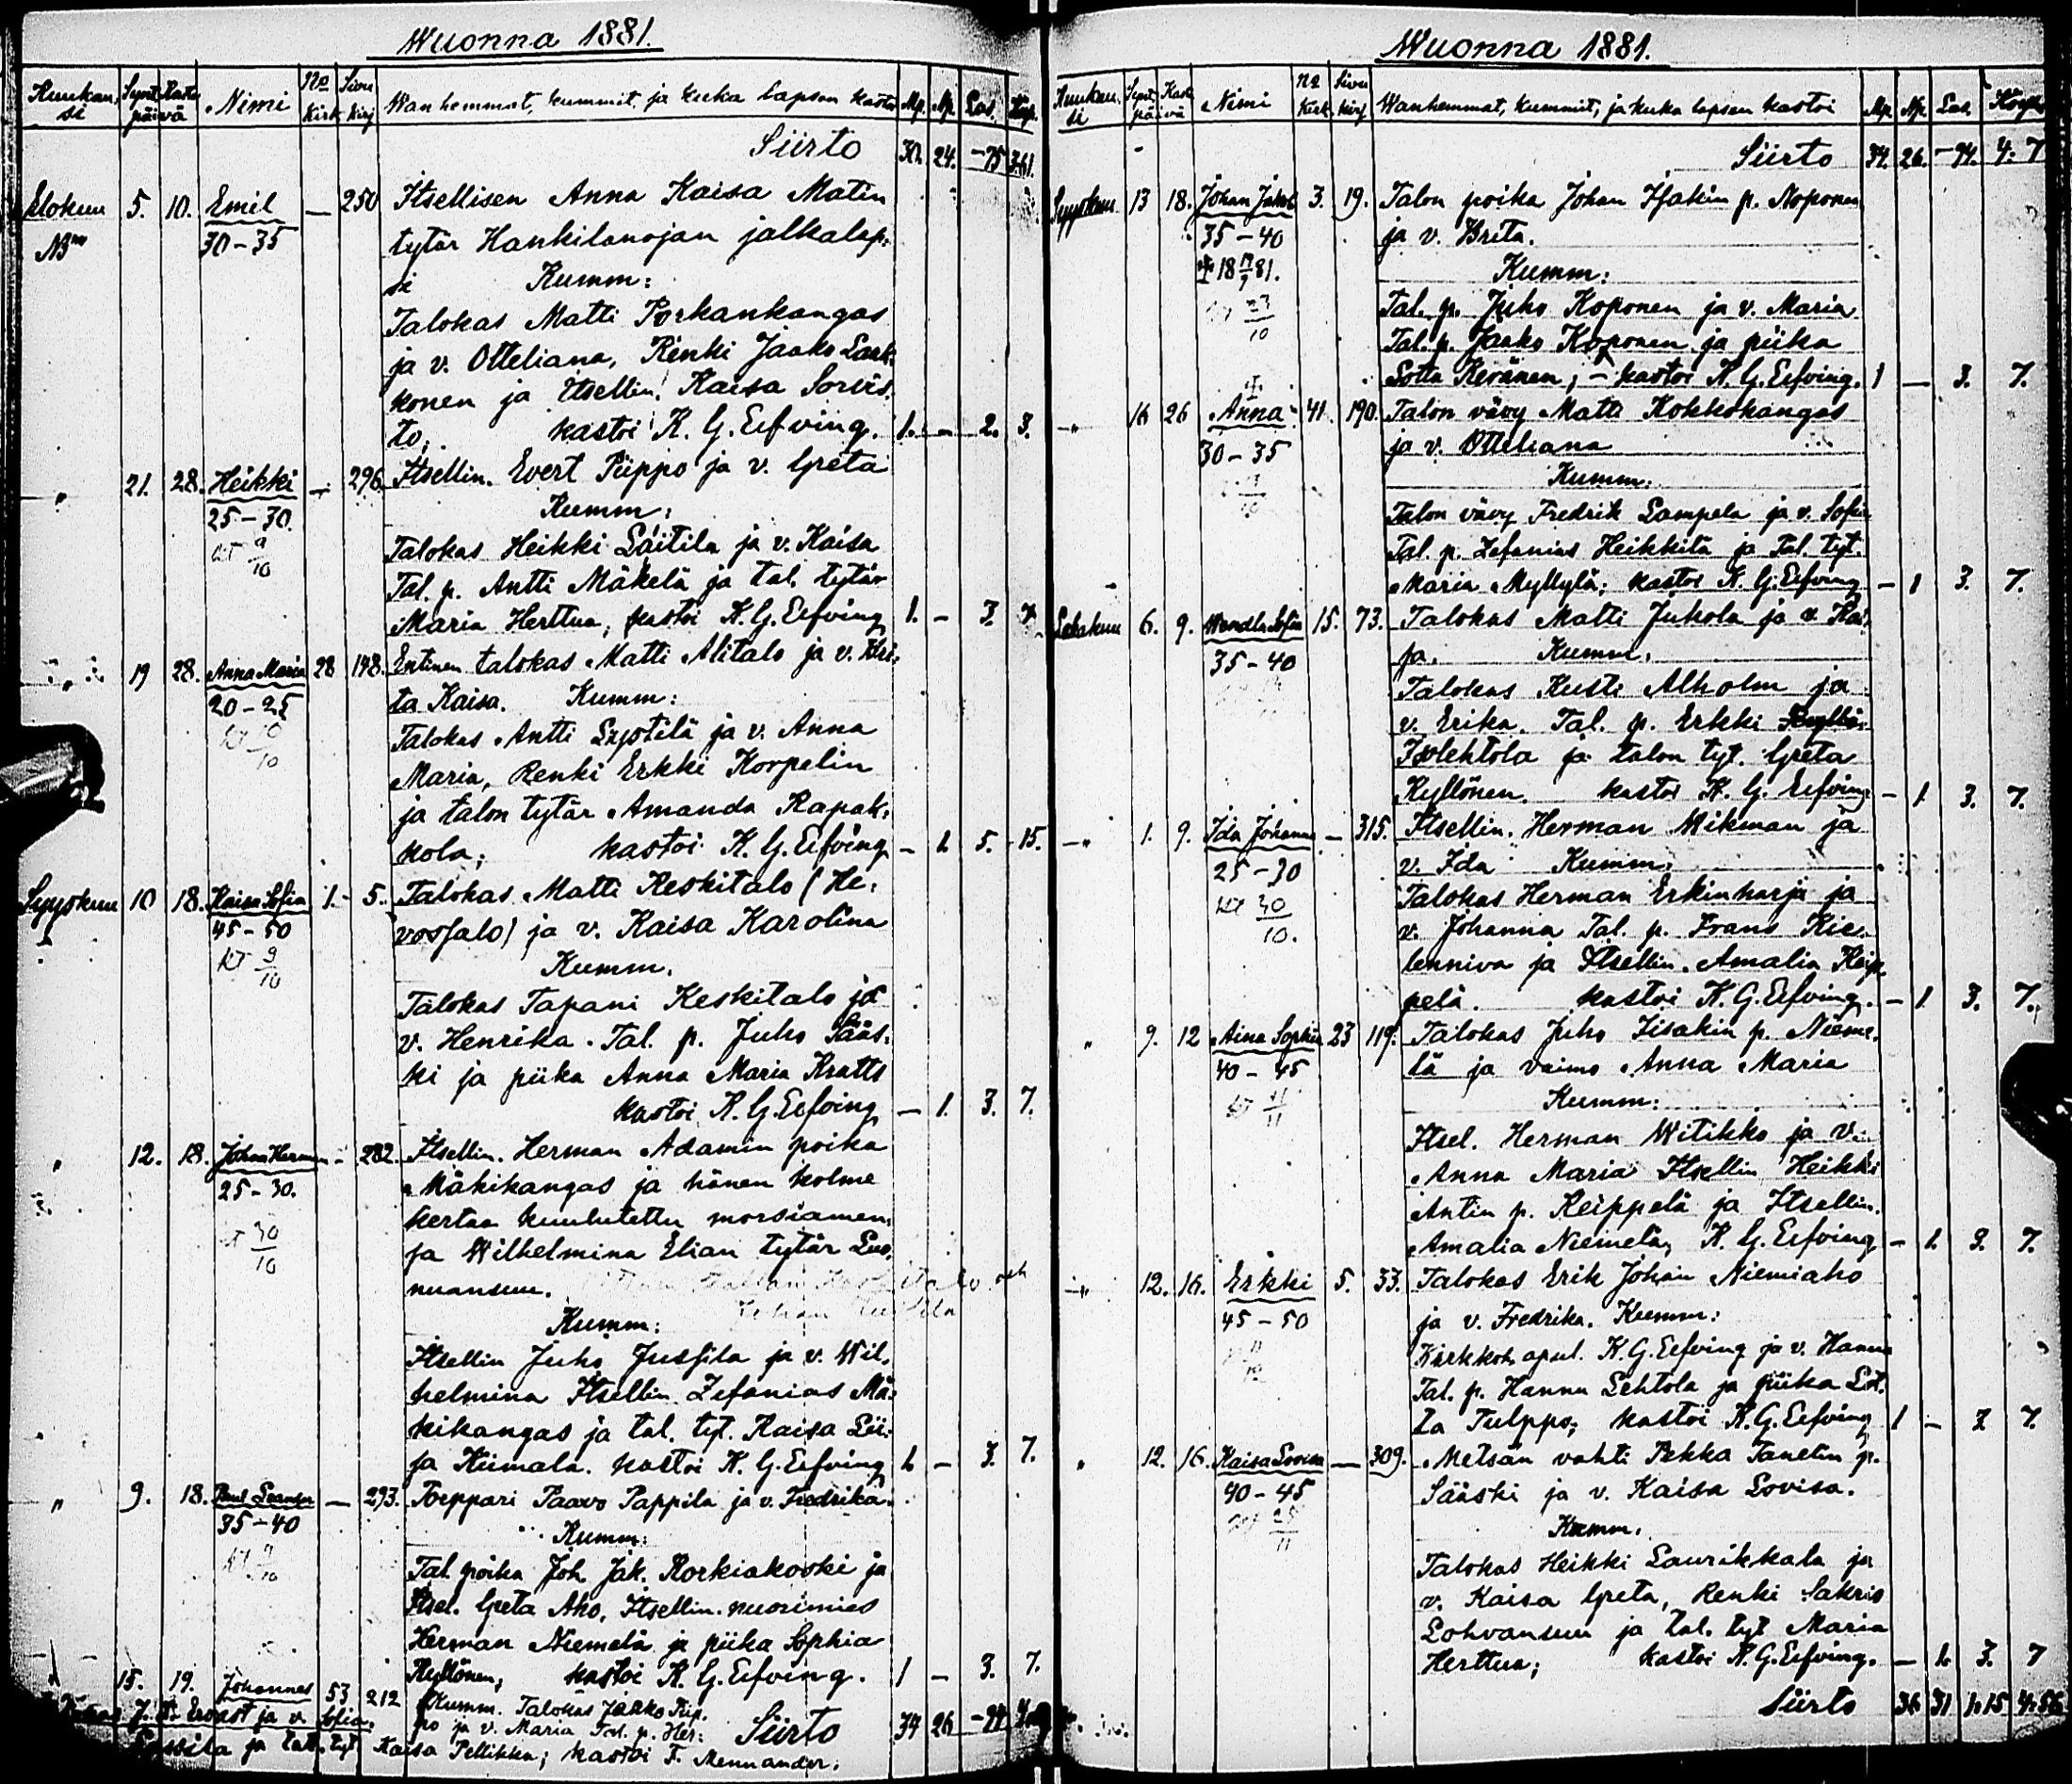 Wuonna 1881.
Kuukausi Synt. päivä Kaste Nimi No Kirk Sivu Kirj Wanhemmat, kummit, ja kuka lapsen kastoi Mp. Np. Las. Köyh.
Siirto 30. 24. -75 3.61.
Elokuu 5. 10. Emil — 250 Itsellisen Anna Kaisa Matin
30-35 tytär Hankilanojan jalkalap-
si Kumm:
Talokas Matti Porkankangas
ja v. Otteliana, Renki Jaako Lauk-
konen ja Itsellin. Kaisa Sorvis-
to; kastoi K. G. Eefving. 1. — 2. 3.
" 21. 28. Heikki — 296. Itsellin. Evert Piippo ja v. Greta
25-30. Kumm:
9/10 Talokas Heikki Laitila ja v. Kaisa
Tal. p. Antti Mäkelä ja tal. tytär
Maria Herttua, kastoi K. G. Eefving 1. — 3. 7.
" 19 28. Anna Maria 28 148. Entinen talokas Matti Alitalo ja v. Bri-
20-25 ta Kaisa. Kumm:
Talokas Antti Lystilä ja v. Anna
Maria, Renki Erkki Korpelin
ja talon tytär Amanda Rapak-
kola; kastoi K. G. Eefving — 1. 5. 15.
Syyskuu 10 18. Kaisa Sofia 1. 5. Talokas Matti Keskitalo (He-
45-50 vossalo) ja v. Kaisa Karolina
kt 9/10 Kumm.
Talokas Tapani Keskitalo ja
v. Henrika. Tal. p. Juho Sääs-
ki ja piika Anna Maria Kratti
kastoi K. G. Eefving — 1. 3. 7.
" 12. 18. Johan Herman — 282. Itsellin. Herman Adamin poika
25-30. Mäkikangas ja hänen kolme
30/10 kertaa kuulutettu morsiamen
ja Wilhelmina Elian tytär Luo-
nuansuu.
Kumm:
Itsellin Juho Jussila ja v. Wil-
helmina Itsellin Zefanias Mä-
kikangas ja tal. tyt. Kaisa Lii-
sa Kiimala. kastoi K. G. Eefving 1. — 3. 7.
" 9. 18. Paul Leander — 293. Torppari Paavo Pappila ja v. Fredrika.
35-40 Kumm:
Tal. poika Joh. Jak. Korkiakoski ja
Itsel. Greta Aho, Itsellin. nuorimies
Herman Niemelä ja piika Sophia
Kyllönen; kastoi K. G. Eefving. 1 — 3. 7.
15. 19. Johannes 53 212 Kumm. Talokas Jaakko
Ervast ja v. Sofia. ja v. Maria Tal. p. Her: Siirto 34 26 -94
ja tal. tyt Kaisa Pellikka; kastoi F. Mennander.
Wuonna 1881.
Kuukausi Synt. päivä Kast. Nimi No Kirk. Sivu kirj Wanhemmat, kummit, ja kuka lapsen kastoi Mp. Np. Las. Köyh.
Siirto 34. 26. -94. 4: 7
Syyskuu 13 18. Johan Jakob 3. 19. Talon poika Johan Isakin p. Noponen
35-40 ja v. Brita.
Kumm:
Tal. p. Juho Koponen ja v. Maria
Tal. p. Jaako Koponen ja piika
Sotta Keränen; — kastoi K. G. Eefving. 1 — 3. 7.
" 16 26 Anna 41. 190. Talon vävy Matti Kokkokangas
30-35 ja v. Otteliana
Kumm.
Talon vävy Fredrik Lampela ja v. Sofia
Tal. p. Zefanias Heikkilä ja Tal. tyt.
Maria Myllylä; kastoi K. G. Eefving — 1 3. 7.
Lokakuu 6. 9. Wendla Sofia 15. 73. Talokas Matti Jukola ja v. Kai-
35-40 sa. Kumm.
Talokas Kusti Alholm ja
v. Erika. Tal. p. Erkki
Isolehtola ja talon tyt. Greta
Kyllönen. kastoi K. G. Eefving — 1. 3. 7.
" 1. 9. Ida Johanna — 315. Itsellin. Herman Wikman ja
25-30 v. Ida Kumm:
kt 30/10. Talokas Herman Erkinharja ja
v. Johanna Tal. p. Frans Kie-
lenniva ja Itsellin. Amalia Keip-
pelä. kastoi K. G. Eefving. — 1. 3. 7.
" 9. 12 Aina Sophia 23 119. Talokas Juho Iisakin p. Nieme-
40-45 lä ja vaimo Anna Maria
11/11 Kumm:
Itsel. Herman Witikko ja v.
Anna Maria Itsellin Heikki
Antin p. Keippelä ja Itsellin.
Amalia Niemelä; K. G. Eefving — 1. 3. 7.
" 12. 16. Erkki 5. 33. Talokas Erik Johan Niemiaho
45-50 ja v. Fredrika. Kumm:
Kirkkoh. apul. K. G. Eefving ja v. Hanna
Tal. p. Hannu Lehtola ja piika Lot-
ta Tulppo; kastoi K. G. Eefving 1 — 3 7.
" 12. 16. Kaisa Lovisa — 309. Metsän vahti Pekka Tanelin p.
40-45 Sääski ja v. Kaisa Lovisa.
Kumm.
Talokas Heikki Laurikkala ja
v. Kaisa Greta, Renki Sakris
Lohvansuu ja tal. tyt Maria
Herttua; kastoi K. G. Eefving. — 1. 3. 7
Siirto 36 31 1.15 4.56